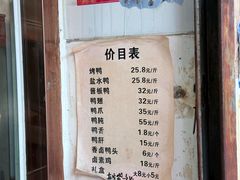 价目表
烤鸭 25.8元/斤
盐水鸭 25.8元/斤
酱板鸭 32元/斤
鸭翅 32元/斤
鸭爪 35元/斤
鸭肫 55元/斤
鸭舌 1.8元/个
鸭肝 15元/斤
香卤鸭头 6元/个
卤素鸡 18元/斤
礼盒 大8元小5元